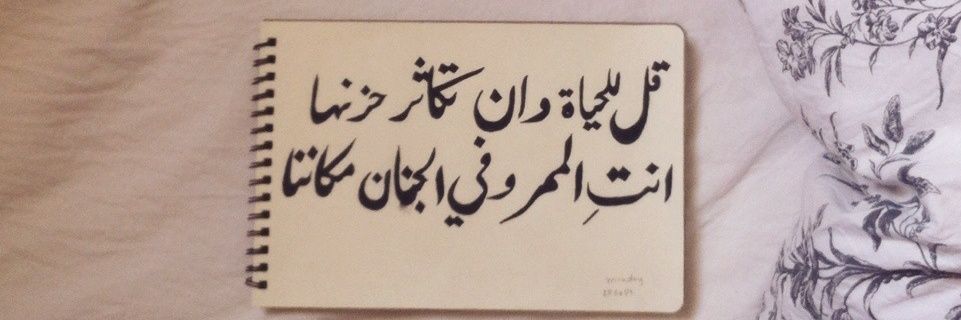 قل للحياة وان تكاثر حزنها
انتِ الممر وفي الجنان مكاننا